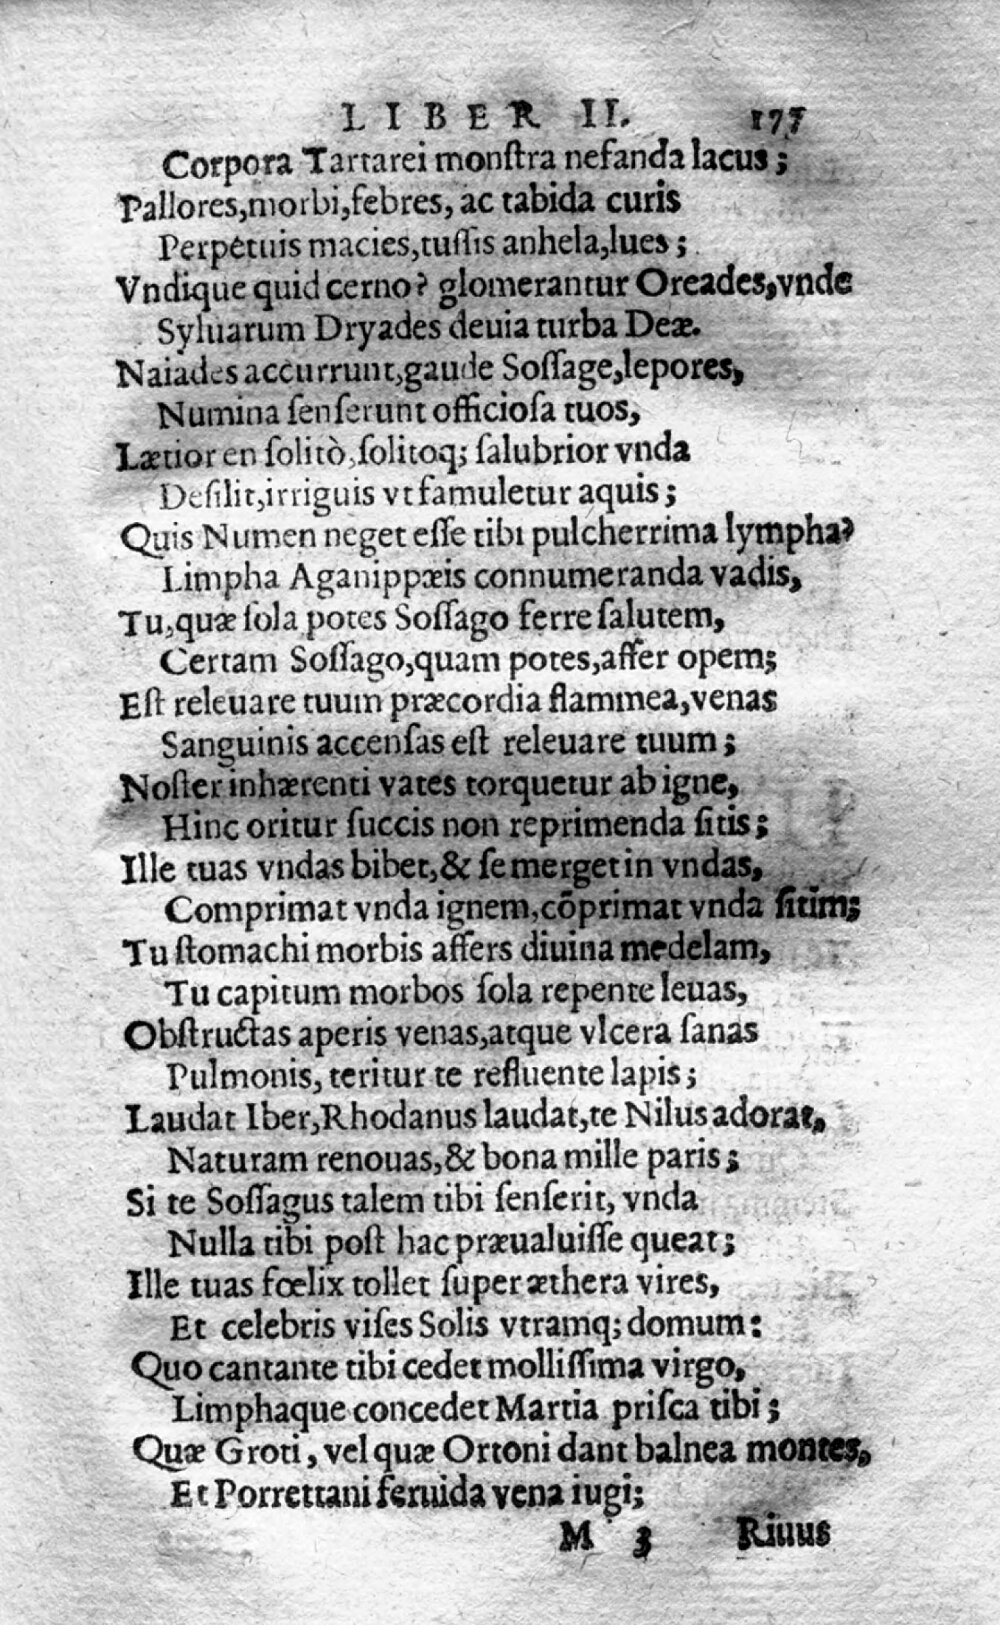 LIBER II. 177
Corpora Tartarei monſtra nefanda lacus;
Pallores, morbi, febres, ac tabida curis
Perpetuis macies, tuſſis anhela, lues;
Vndique quid cerno? glomerantur Oreades, vnde
Syluarum Dryades deuia turba Deæ.
Naiades accurrunt, gaude Soſſage, lepores,
Numina ſenſerunt officioſa tuos,
Lætior en ſolitò, ſolitoq; ſalubrior vnda
Deſilit, irriguis vt famuletur aquis;
Quis Numen neget eſſe tibi pulcherrima lympha?
Limpha Aganippæis connumeranda vadis,
Tu, quæ ſola potes Soſſago ferre ſalutem,
Certam Soſſago, quam potes, affer opem;
Eſt releuare tuum præcordia flammea, venas
Sanguinis accenſas eſt releuare tuum;
Noſter inhærenti vates torquetur ab igne,
Hinc oritur ſuccis non reprimenda ſitis;
Ille tuas vndas bibet, & ſe merget in vndas,
Comprimat vnda ignem, cōprimat vnda ſitim;
Tu ſtomachi morbis affers diuina medelam,
Tu capitum morbos ſola repente leuas,
Obſtructas aperis venas, atque vlcera ſanas
Pulmonis, teritur te refluente lapis;
Laudat Iber, Rhodanus laudat, te Nilus adorat,
Naturam renouas, & bona mille paris;
Si te Soſſagus talem tibi ſenſerit, vnda
Nulla tibi poſt hac præualuiſſe queat;
Ille tuas fœlix tollet ſuper æthera vires,
Et celebris viſes Solis vtramq; domum:
Quo cantante tibi cedet molliſſima virgo,
Limphaque concedet Martia priſca tibi;
Quæ Groti, vel quæ Ortoni dant balnea montes,
Et Porrettani feruida vena iugi;
M 3 Riuus